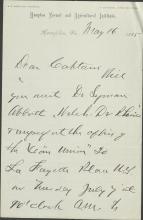 Hampton Normal and Agricultural Institute,
Hampton, Va. May 16 1885
Dear Captain
Will
you meet Dr Lyman
Abbott
& myself at the opening of
the "Union" To
La Fayette Place
on Tuesday July 7 at
10 o'clock A.M. to